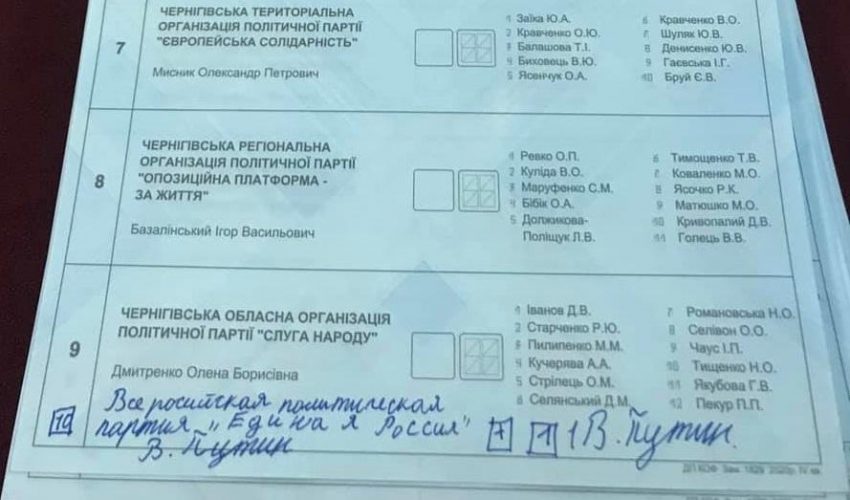 7
ЧЕРНІГІВСЬКА ТЕРИТОРІАЛЬНА
ОРГАНІЗАЦІЯ ПОЛІТИЧНОЇ ПАРТІЇ
"ЄВРОПЕЙСЬКА СОЛІДАРНІСТЬ"
Мисник Олександр Петрович
1 Заїка Ю.А.
2 Кравченко О.Ю.
3 Балашова Т.І.
4 Биховець В.Ю.
5 Ясенчук О.А.
6 Кравченко В.О.
7 Шуляк Ю.В.
8 Денисенко Ю.В.
9 Гаєвська І.Г.
10 Бруй Є.В.
8
ЧЕРНІГІВСЬКА РЕГІОНАЛЬНА
ОРГАНІЗАЦІЯ ПОЛІТИЧНОЇ ПАРТІЇ
"ОПОЗИЦІЙНА ПЛАТФОРМА -
ЗА ЖИТТЯ"
Базалінський Ігор Васильович
1 Ревко О.П.
2 Куліда В.О.
3 Маруфенко С.М.
4 Бібік О.А.
5 Должикова-
Поліщук Л.В.
6 Тимощенко Т.В.
7 Коваленко М.О.
8 Ясочко Р.К.
9 Матюшко М.О.
10 Кривопалий Д.В.
11 Голець В.В.
9
ЧЕРНІГІВСЬКА ОБЛАСНА ОРГАНІЗАЦІЯ
ПОЛІТИЧНОЇ ПАРТІЇ "СЛУГА НАРОДУ"
Дмитренко Олена Борисівна
1 Іванов Д.В.
2 Старченко Р.Ю.
3 Пилипенко М.М.
4 Кучерява А.А.
5 Стрілець О.М.
6 Селянський Д.М.
7 Романовська Н.О.
8 Селівон О.О.
9 Чаус І.П.
10 Тищенко Н.О.
11 Якубова Г.В.
12 Пекур П.П.
10
Всеросийская политическая
партия „Единая Россия"
В. Путин
1 В. Путин.